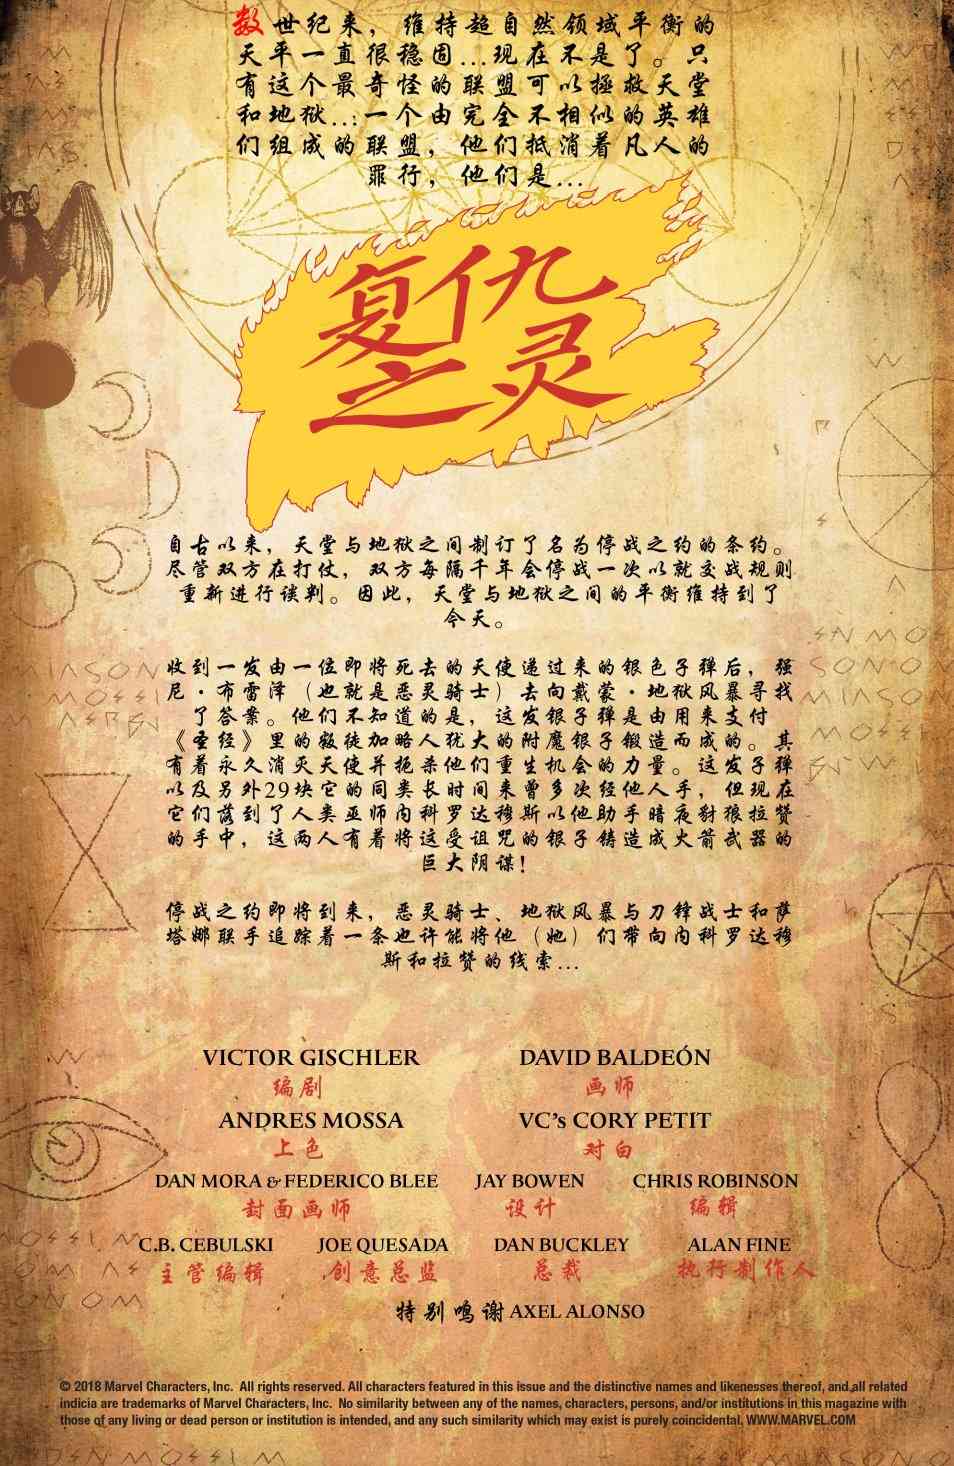 数世纪来，维持超自然领域平衡的
天平一直很稳固...现在不是了。只
有这个最奇怪的联盟可以拯救天堂
和地狱...:一个由完全不相似的英雄
们组成的联盟，他们抵消着凡人的
罪行，他们是...
复仇
之灵
自古以来，天堂与地狱之间制订了名为停战之约的条约。
尽管双方在打仗，双方每隔千年会停战一次以就交战规则
重新进行谈判。因此，天堂与地狱之间的平衡维持到了
今天。
收到一发由一位即将死去的天使递过来的银色子弹后，强
尼·布雷泽（也就是恶灵骑士）去向戴蒙·地狱风暴寻找
了答案。他们不知道的是，这发银子弹是由用来支付
《圣经》里的叛徒加略人犹大的附魔银子锻造而成的。其
有着永久消灭天使并扼杀他们重生机会的力量。这发子弹
以及另外29块它的同类长时间来曾多次经他人手，但现在
它们落到了人类巫师内科罗达穆斯以他助手暗夜豺狼拉赞
的手中，这两人有着将这受诅咒的银子铸造成火箭武器的
巨大阴谋！
停战之约即将到来，恶灵骑士、地狱风暴与刀锋战士和萨
塔娜联手追踪着一条也许能将他（她）们带向内科罗达穆
斯和拉赞的线索...
VICTOR GISCHLER DAVID BALDEÓN
编剧 画师
ANDRES MOSSA VC's CORY PETIT
上色 对白
DAN MORA & FEDERICO BLEE JAY BOWEN CHRIS ROBINSON
封面画师 设计 编辑
C.B. CEBULSKI JOE QUESADA DAN BUCKLEY ALAN FINE
主管编辑 创意总监 总裁 执行制作人
特别鸣谢 AXEL ALONSO
© 2018 Marvel Characters, Inc. All rights reserved. All characters featured in this issue and the distinctive names and likenesses thereof, and all related
indicia are trademarks of Marvel Characters, Inc. No similarity between any of the names, characters, persons, and/or institutions in this magazine with
those of any living or dead person or institution is intended, and any such similarity which may exist is purely coincidental. WWW.MARVEL.COM